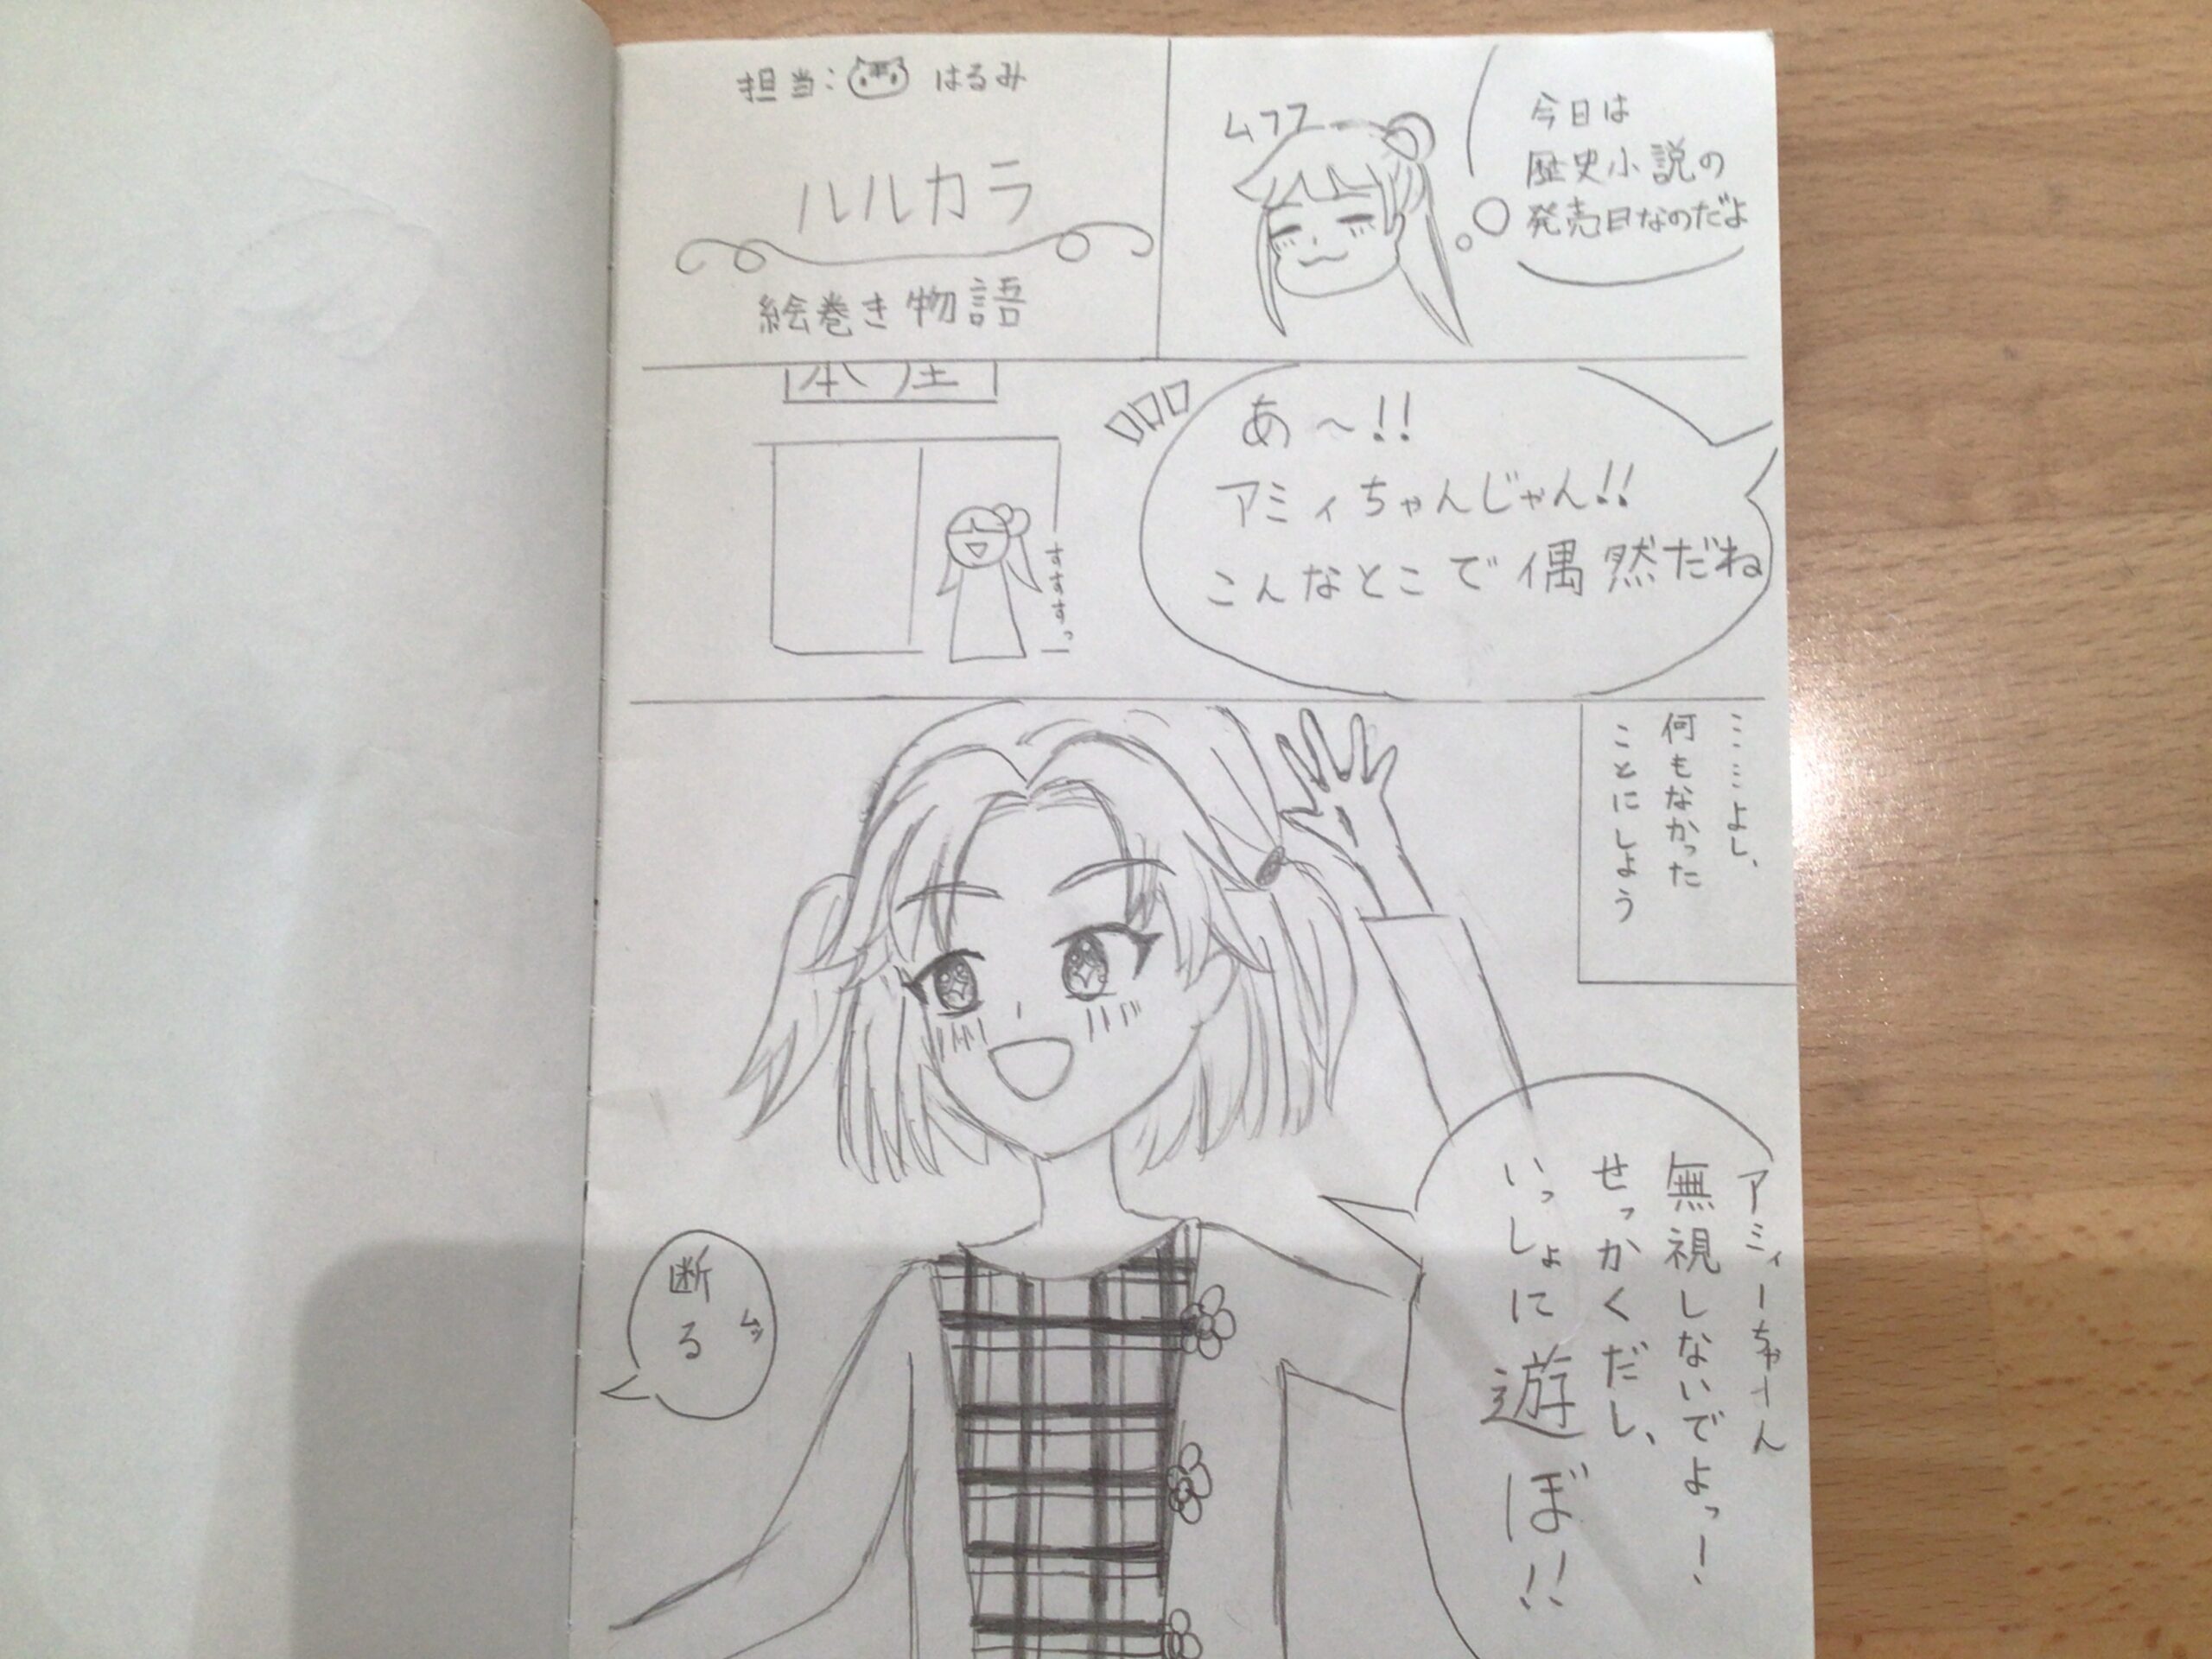 担当: はるみ
ルルカラ
絵巻き物語
ムフフ
今日は
歴史小説の
発売日なのだよ
本屋
すすすっ
あ〜!!
アミィちゃんじゃん!!
こんなとこで偶然だね
……よし、
何もなかった
ことにしよう
アミィーちゃーん
無視しないでよっー!
せっかくだし、
いっしょに遊ぼ!!
ムッ
断る